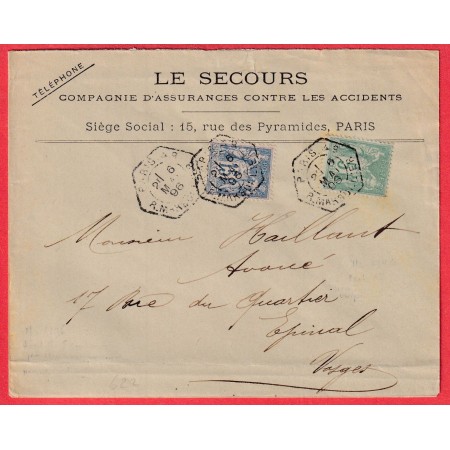 TÉLÉPHONE
LE SECOURS
COMPAGNIE D'ASSURANCES CONTRE LES ACCIDENTS
Siège Social : 15, rue des Pyramides, PARIS
Monsieur Haillant
Avoué
17 Rue du Quartier
Epinal
Vosges